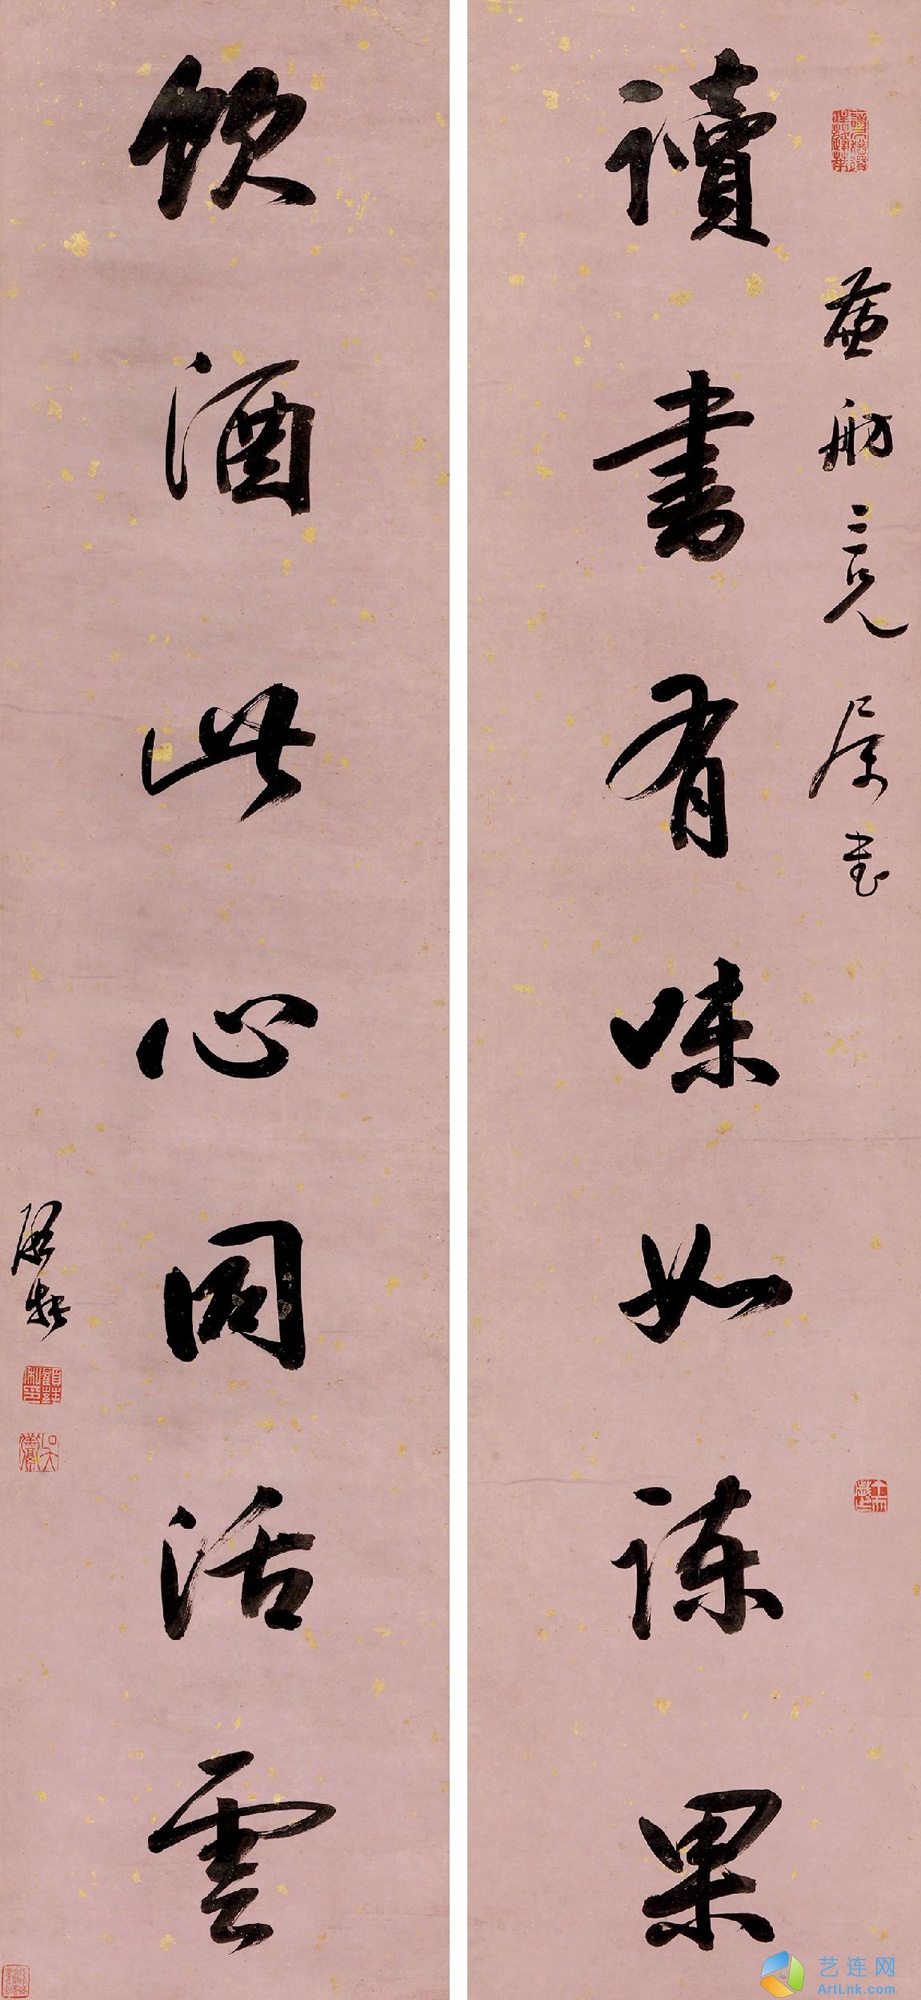 讀書有味如諫果
舫三兄属書
飲酒此心同活雲
艺连网
ArtLnk.com